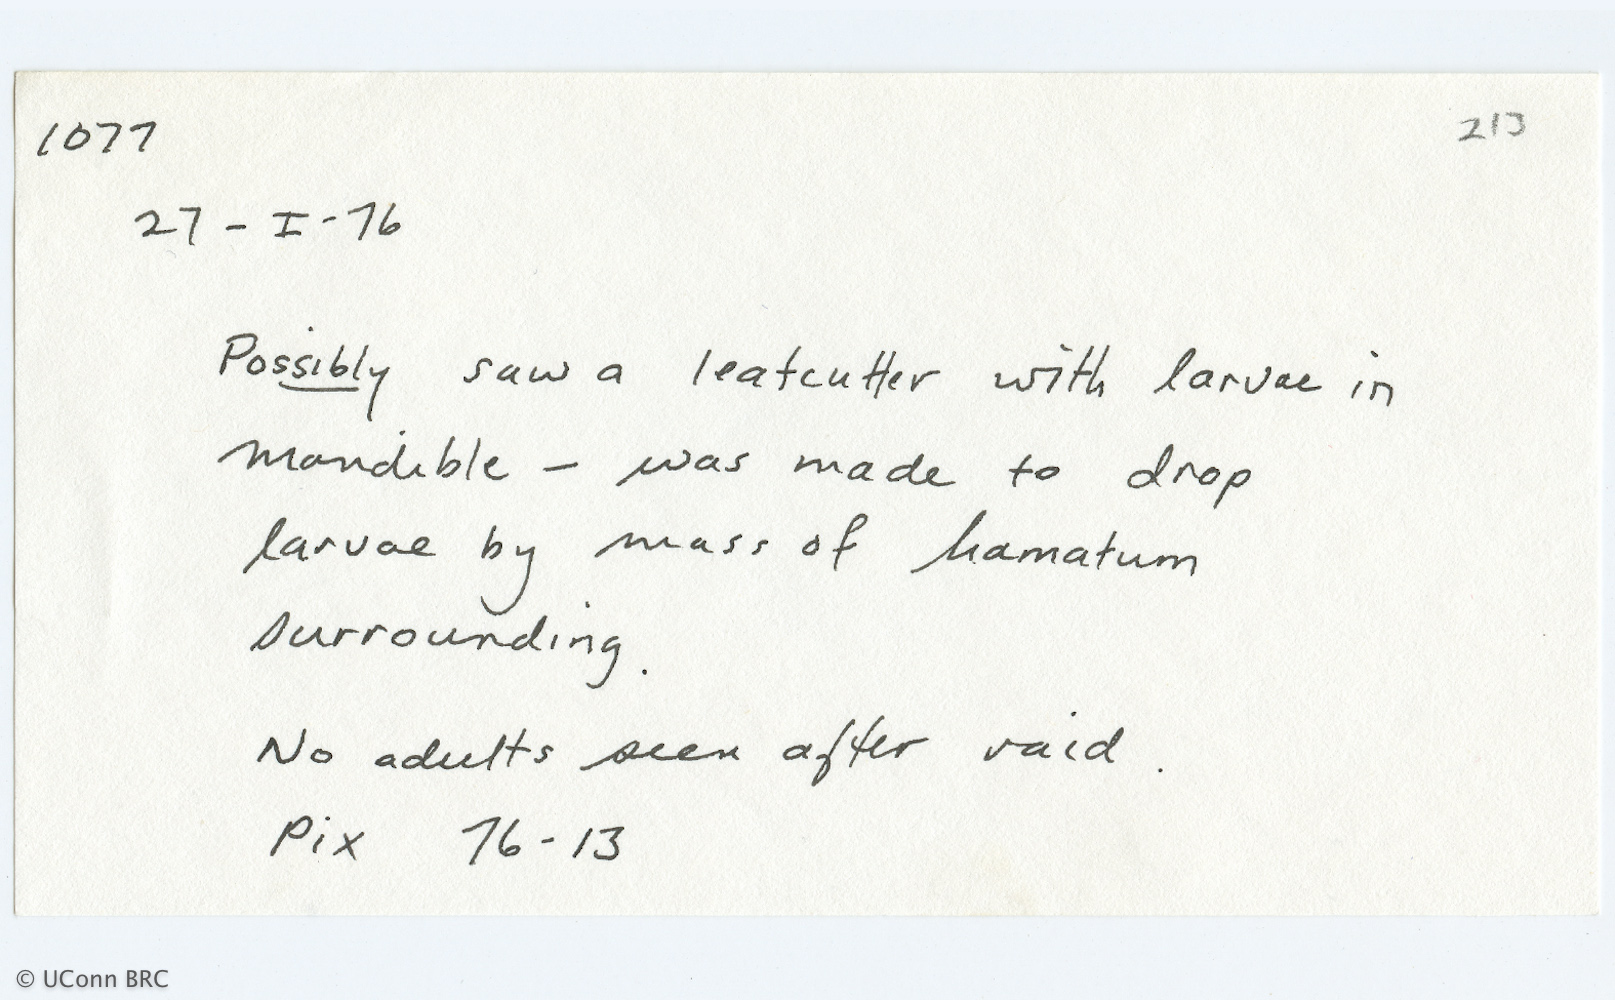 1077
213
27 - I - 76
Possibly saw a leafcutter with larvae in
mandible – was made to drop
larvae by mass of hamatum
surrounding.
No adults seen after raid.
Pix 76-13
© UConn BRC